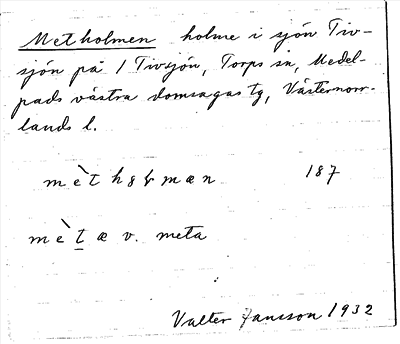 Metholmen holme i sjön Tiv-
sjön på 1 Tivsjön, Torps sn, Medel-
pads västra domsagas tg, Västernorr-
lands l.
mèth8ƚmæn 187
mètæ v. meta
Valter Jansson 1932